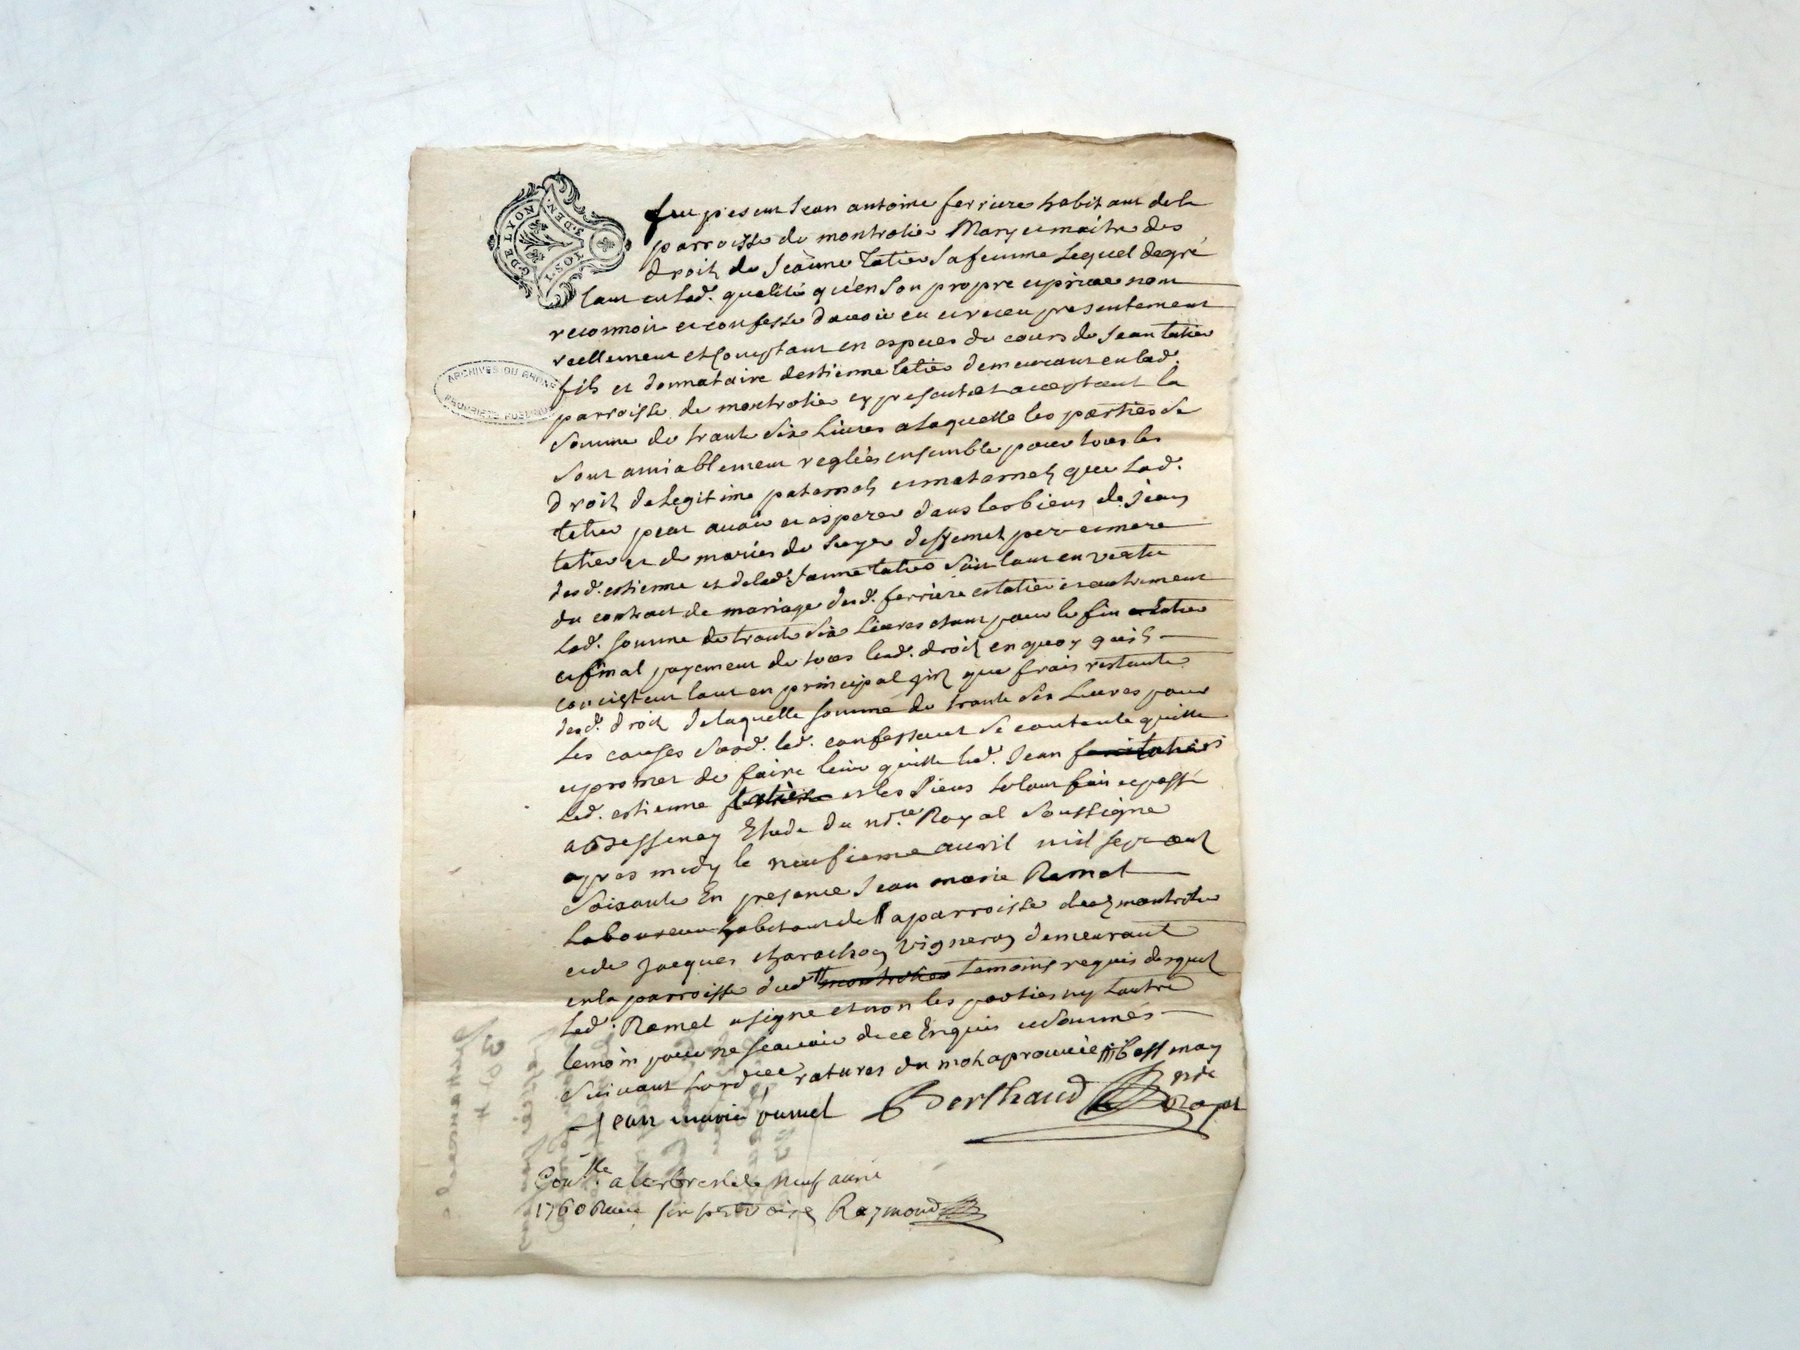 G. DE LYON
1. SOL 3. DEN.
ARCHIVES DU RHÔNE
PROPRIÉTÉ PUBLIQUE
fut present Jean antoine ferriere habitant de la
parroisse de montrotier Mary et maitre des
droits de Jeanne tatier sa femme Lequel de gré
tant en lad. qualité qu'en son propre et privé nom
reconnoit et confesse d'avoir eu et receu presentement
reellement et comptant en especes du cours de Jean tatier
fils et donnataire d'estienne tatier demeurant en lad.
parroisse de montrotier cy present et acceptant la
somme de trante six Livres a laquelle les parties se
sont amiablement reglées ensemble pour tous les
droits de legitime paternels et maternels que lad.
tatier peut avoir et esperer dans les biens de
tatier et de mariee du deffunts pere et mere
desd. estienne et de lad. Janne tatier soit tant en vertu
du contract de mariage desd. ferriere et tatier et autrement
lad. somme de trante six Livres etant pour le fin
et final payement de tous lesd. droits en quoy quils
consistent tant en principal que frais restante
desd. droits de laquelle somme de trante six Livres pour
les causes susd. led. confessant se contente quitte
et promet de faire tenir quitte led. Jean
led. estienne et les siens fait et passé
a Bessenay Etude du no.re Royal soussigné
apres midy le neufieme avril mil sept cent
soixante En presence Jean marie Ramel
Laboureur habitant de la parroisse de montrotier
et de Jacques vigneron demeurant
en la parroisse dud temoins requis desquels
led. Ramel a signé et non les parties ny l'autre
temoin pour ne scavoir de ce Enquis et sommés
suivant ratures du mot aprouvée Bessenay
Jean marie ramel Berthaud n.re Royal
Con.lle a Larbresle le neuf avril
1760 Reçu Raymond